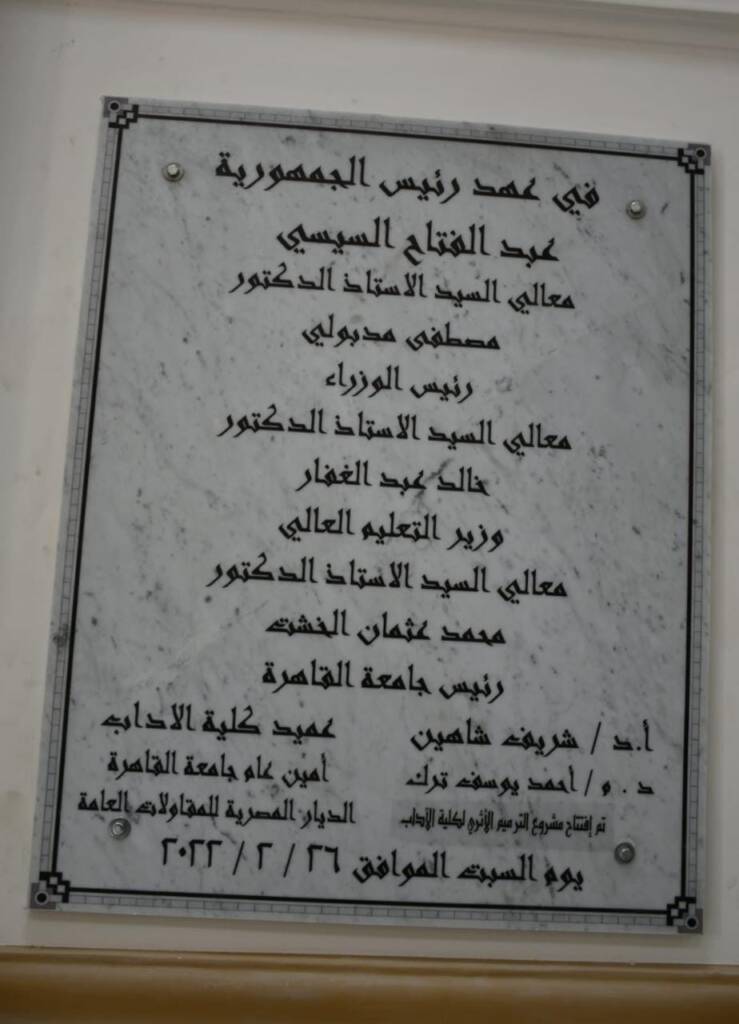 في عهد رئيس الجمهورية
عبد الفتاح السيسي
معالي السيد الاستاذ الدكتور
مصطفى مدبولي
رئيس الوزراء
معالي السيد الاستاذ الدكتور
خالد عبد الغفار
وزير التعليم العالي
معالي السيد الاستاذ الدكتور
محمد عثمان الخشت
رئيس جامعة القاهرة
أ.د / شريف شاهين عميد كلية الاداب
د . م / أحمد يوسف ترك أمين عام جامعة القاهرة
تم إفتتاح مشروع الترميم الأثري لكلية الآداب الديار المصرية للمقاولات العامة
يوم السبت الموافق ٢٦ / ٢ / ٢٠٢٢